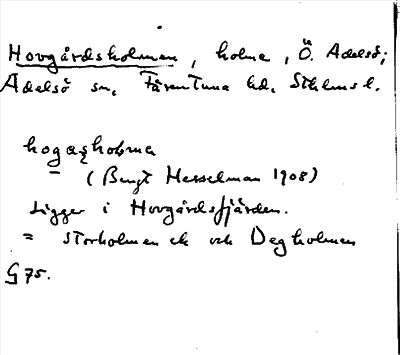 Hovgårdsholmen, holme, Ö. Adelsö;
Adelsö sn, Färentuna hd, Sthlms l.
hogaşholme
(Bengt Hesselman 1908)
Ligger i Hovgårdsfjärden.
= Storholmen ek och Degholmen
G 75.